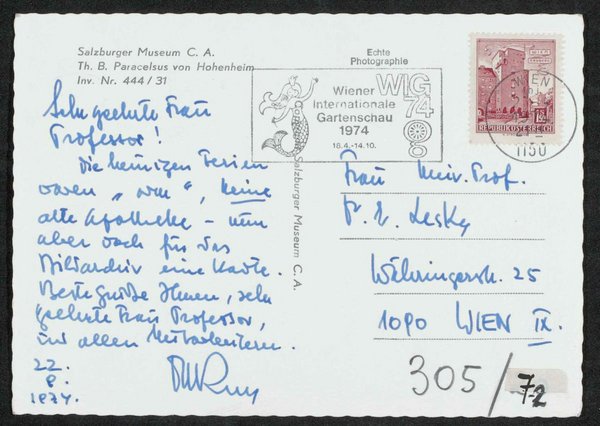 Salzburger Museum C. A.
Th. B. Paracelsus von Hohenheim
Inv. Nr. 444/31
Echte
Photographie
Wiener
Internationale
Gartenschau
1974
18.4.-14.10.
WIG
74
WIEN
1150
REPUBLIK ÖSTERREICH
Salzburger Museum C. A.
Sehr geehrte Frau
Professor!
Die heurigen Ferien
waren „ “, keine
alte Apotheke – nun
aber doch für das
Bildarchiv eine Karte.
Beste Grüße Ihnen, sehr
geehrte Frau Professor,
und allen Mitarbeitern.
22.
8.
1974.
Frau Univ. Prof.
E. Lesky
Währingerstr. 25
1090 WIEN IX.
305/72